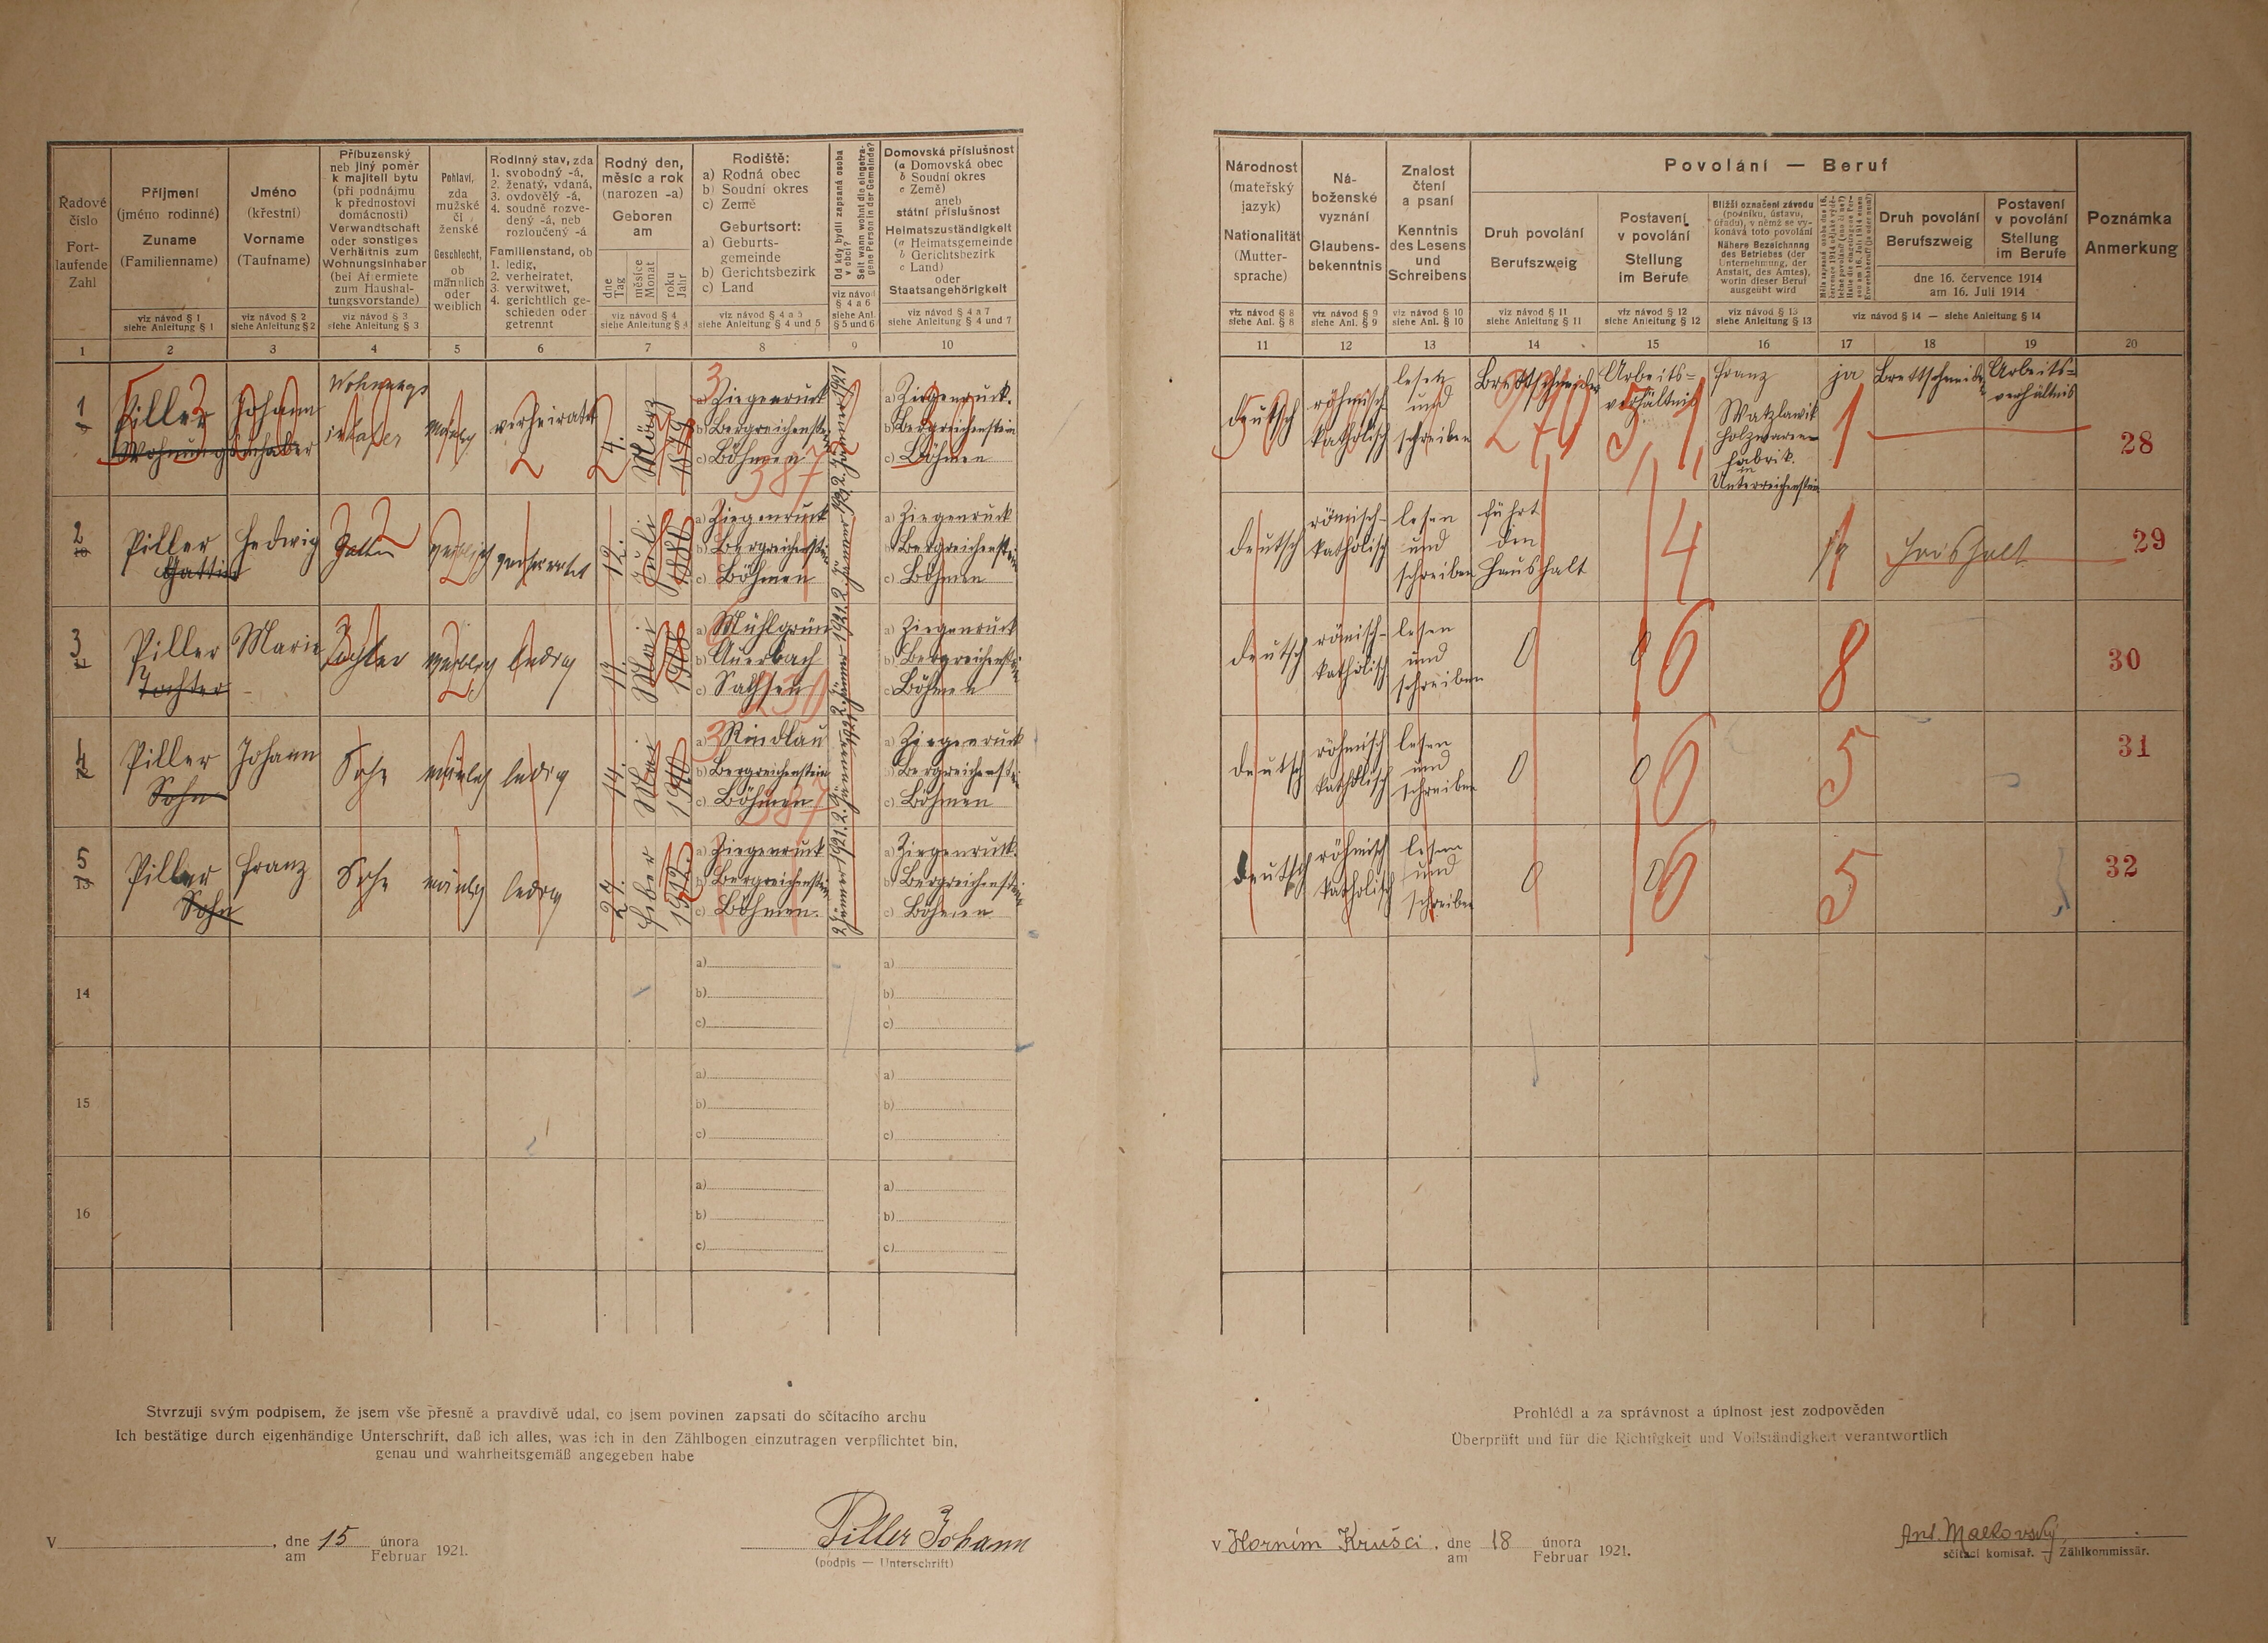 Řadové
číslo
Fort-
laufende
Zahl
1
Příjmení
(jméno rodinné)
Zuname
(Familienname)
viz návod § 1
siehe Anleitung § 1
2
Jméno
(křestní)
Vorname
(Taufname)
viz návod § 2
siehe Anleitung § 2
3
Příbuzenský
neb jiný poměr
k majiteli bytu
(při podnájmu
k přednostovi
domácnosti)
Verwandtschaft
oder sonstiges
Verhältnis zum
Wohnungsinhaber
(bei Afermiete
zum Haushal-
tungsvorstande)
viz návod § 3
siehe Anleitung § 3
4
Pohlaví,
zda
mužské
či
ženské
Geschlecht,
ob
männlich
oder
weiblich
5
Rodinný stav, zda
1. svobodný -á,
2. ženatý, vdaná,
3. ovdovělý -á,
4. soudně rozve-
dený -á, neb
rozloučený -á
Familienstand, ob
1. ledig,
2. verheiratet,
3. verwitwet,
4. gerichtlich ge-
schieden oder
getrennt
6
Rodný den,
měsíc a rok
(narozen -a)
Geboren
am
dne
Tag
měsíce
Monat
roku
Jahr
viz návod § 4
siehe Anleitung § 4
7
Rodiště:
a) Rodná obec
b) Soudní okres
c) Země
Geburtsort:
a) Geburts-
gemeinde
b) Gerichtsbezirk
c) Land
viz návod § 4 a 5
siehe Anleitung § 4 und 5
8
Od kdy bydlí zapsaná osoba
v obci?
Seit wann wohnt die eingetra-
gene Person in der Gemeinde?
viz návod
§ 4 a 6
siehe Anl.
§ 5 und 6
9
Domovská příslušnost
(a Domovská obec
b Soudní okres
c Země)
aneb
státní příslušnost
Heimatszuständigkeit
(a Heimatsgemeinde
b Gerichtsbezirk
c Land)
oder
Staatsangehörigkeit
viz návod § 4 a 7
siehe Anleitung § 4 und 7
10
Národnost
(mateřský
jazyk)
Nationalität
(Mutter-
sprache)
viz návod § 8
siehe Anl. § 8
11
Ná-
boženské
vyznání
Glaubens-
bekenntnis
viz návod § 9
siehe Anl. § 9
12
Znalost
čtení
a psaní
Kenntnis
des Lesens
und
Schreibens
viz návod § 10
siehe Anl. § 10
13
Povolání — Beruf
Druh povolání
Berufszweig
viz návod § 11
siehe Anleitung § 11
14
Postavení
v povolání
Stellung
im Berufe
viz návod § 12
siehe Anleitung § 12
15
Bližší označení závodu
(podniku, ústavu,
úřadu), v němž se vy-
konává toto povolání
Nähere Bezeichnung
des Betriebes (der
Unternehmung, der
Anstalt, des Amtes),
worin dieser Beruf
ausgeübt wird
viz návod § 13
siehe Anleitung § 13
16
17
Druh povolání
Berufszweig
Postavení
v povolání
Stellung
im Berufe
dne 16. července 1914
am 16. Juli 1914
viz návod § 14 — siehe Anleitung § 14
18
19
Poznámka
Anmerkung
20
1
Piller
Wohnungsinhaber
Johann
Wohnungs
inhaber
verheiratet
2
24.
März
1879
3
a) Ziegenruck
b) Bergreichenstein
c) Böhmen
387
2. Jänner 1921
a) Ziegenruck.
b) Bergreichenstein
c) Böhmen
deutsch
römisch
katholisch
lesen
und
schreiben
Brettschneider
270
Arbeits=
verhältnis
Franz
Watzlawik
Holzwaren
fabrik.
in
Unterreichenstein
ja
1
Brettschneider
Arbeits=
verhältnis
28
2
Piller
Gattin
Hedwig
Gattin
weiblich
verheiratet
12.
Juli
1880
a) Ziegenruck
b) Bergreichenstein
c) Böhmen
2. Jänner 1921
a) Ziegenruck
b) Bergreichenstein
c) Böhmen
deutsch
römisch-
katholisch
lesen
und
schreiben
führt
den
Haushalt
4
ja
Haushalt
29
3
Piller
Tochter
Marie
Tochter
weiblich
ledig
19.
Mai
1908
a) Mühlgrün
b) Auerbach
c) Sachsen
230
2. Jänner 1921
a) Ziegenruck
b) Bergreichenstein
c) Böhmen
deutsch
römisch-
katholisch
lesen
und
schreiben
0
0
6
8
30
4
Piller
Sohn
Johann
Sohn
männlich
ledig
14.
Mai
1910
3
a) Rindlau
b) Bergreichenstein
c) Böhmen
387
2. Jänner 1921
a) Ziegenruck
b) Bergreichenstein
c) Böhmen
deutsch
römisch
katholisch
lesen
und
schreiben
0
0
6
5
31
5
Piller
Sohn
Franz
Sohn
männlich
ledig
27.
Feber
a) Ziegenruck
b) Bergreichenstein
c) Böhmen
2 Jänner 1921
a) Ziegenruck.
b) Bergreichenstein
c) Böhmen
deutsch
römisch
katholisch
lesen
und
schreiben
0
0
6
5
32
14
a)
a)
b)
b)
c)
c)
15
a)
a)
b)
b)
c)
c)
16
a)
a)
b)
b)
c)
c)
Stvrzuji svým podpisem, že jsem vše přesně a pravdivě udal, co jsem povinen zapsati do sčítacího archu
Ich bestätige durch eigenhändige Unterschrift, daß ich alles, was ich in den Zählbogen einzutragen verpflichtet bin,
genau und wahrheitsgemäß angegeben habe
V , dne 15 února 1921.
am Februar
Piller Johann
(podpis — Unterschrift)
Prohlédl a za správnost a úplnost jest zodpověden
Überprüft und für die Richtigkeit und Vollständigkeit verantwortlich
v Horním Krušci, dne 18 února 1921.
am Februar
Ant. Malkovský
sčítací komisař. — Zählkommissär.